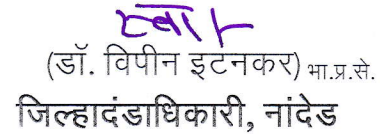 स्वा/-
(डॉ. विपीन इटनकर) भा.प्र.से.
जिल्हादंडाधिकारी, नांदेड